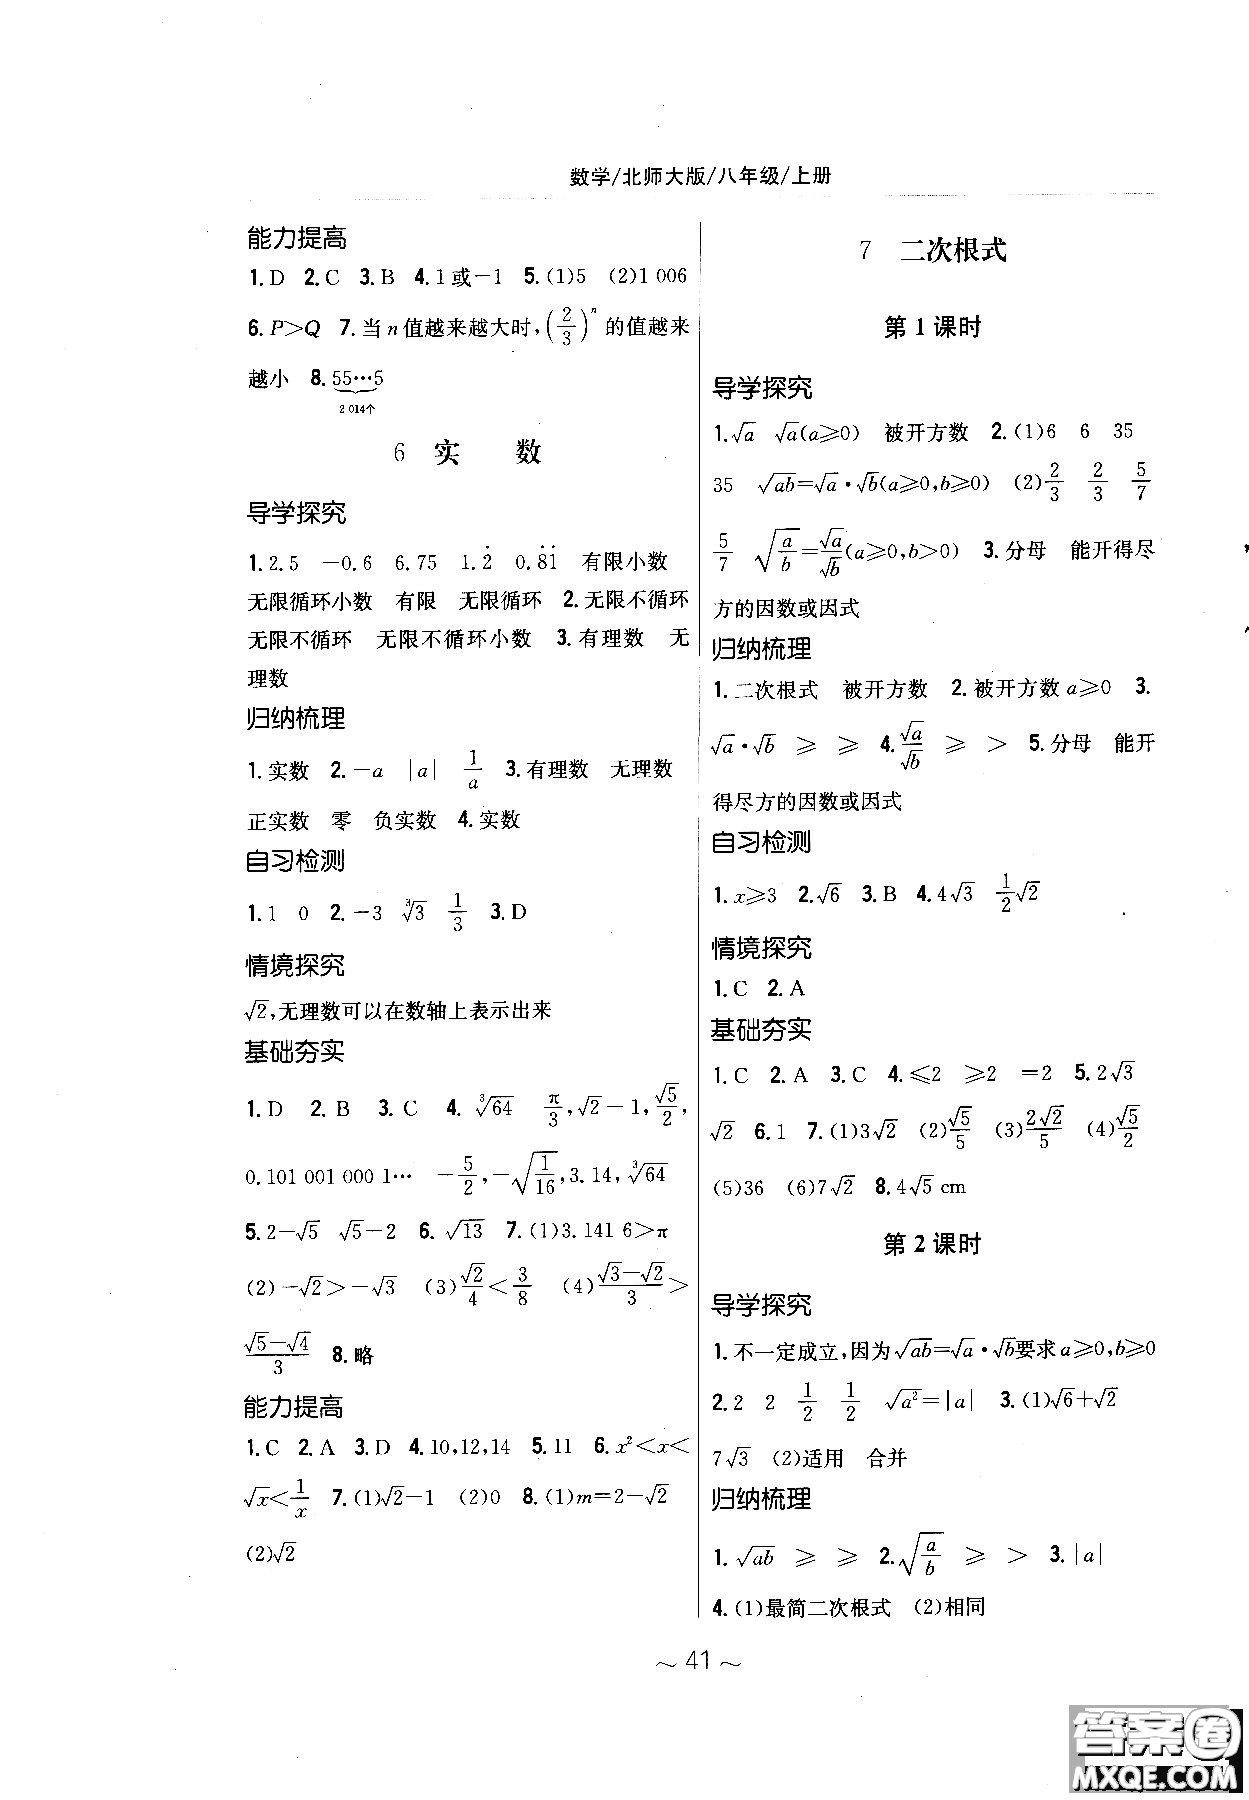 数学/北师大版/八年级/上册
能力提高
1.D 2.C 3.B 4.1或-1 5.(1)5 (2)1 006
6.P>Q 7.当n值越来越大时,(2/3)ⁿ的值越来
越小 8.55…5
2 014个
6 实 数
导学探究
1.2.5 -0.6 6.75 1.2̇ 0.8̇1̇ 有限小数
无限循环小数 有限 无限循环 2.无限不循环
无限不循环 无限不循环小数 3.有理数 无
理数
归纳梳理
1.实数 2.-a |a| 1/a 3.有理数 无理数
正实数 零 负实数 4.实数
自习检测
1.1 0 2.-3 ∛3 1/3 3.D
情境探究
√2,无理数可以在数轴上表示出来
基础夯实
1.D 2.B 3.C 4.∛64 π/3,√2-1,√5/2,
0.101 001 000 1… -5/2,-√(1/16),3.14,∛64
5.2-√5 √5-2 6.√13 7.(1)3.141 6>π
(2)-√2>-√3 (3)√2/4<3/8 (4)(√3-√2)/3>
(√5-√4)/3 8.略
能力提高
1.C 2.A 3.D 4.10,12,14 5.11 6.x²<x<
√x<1/x 7.(1)√2-1 (2)0 8.(1)m=2-√2
(2)√2
7 二次根式
第1课时
导学探究
1.√a √a(a≥0) 被开方数 2.(1)6 6 35
35 √ab=√a·√b(a≥0,b≥0) (2)2/3 2/3 5/7
5/7 √(a/b)=√a/√b(a≥0,b>0) 3.分母 能开得尽
方的因数或因式
归纳梳理
1.二次根式 被开方数 2.被开方数a≥0 3.
√a·√b ≥ ≥ 4.√a/√b ≥ > 5.分母 能开
得尽方的因数或因式
自习检测
1.x≥3 2.√6 3.B 4.4√3 1/2√2
情境探究
1.C 2.A
基础夯实
1.C 2.A 3.C 4.≤2 ≥2 =2 5.2√3
√2 6.1 7.(1)3√2 (2)√5/5 (3)2√2/5 (4)√5/2
(5)36 (6)7√2 8.4√5 cm
第2课时
导学探究
1.不一定成立,因为√ab=√a·√b要求a≥0,b≥0
2.2 2 1/2 1/2 √a²=|a| 3.(1)√6+√2
7√3 (2)适用 合并
归纳梳理
1.√ab ≥ ≥ 2.√(a/b) ≥ > 3.|a|
4.(1)最简二次根式 (2)相同
～41～
答案圈
MXQE.COM